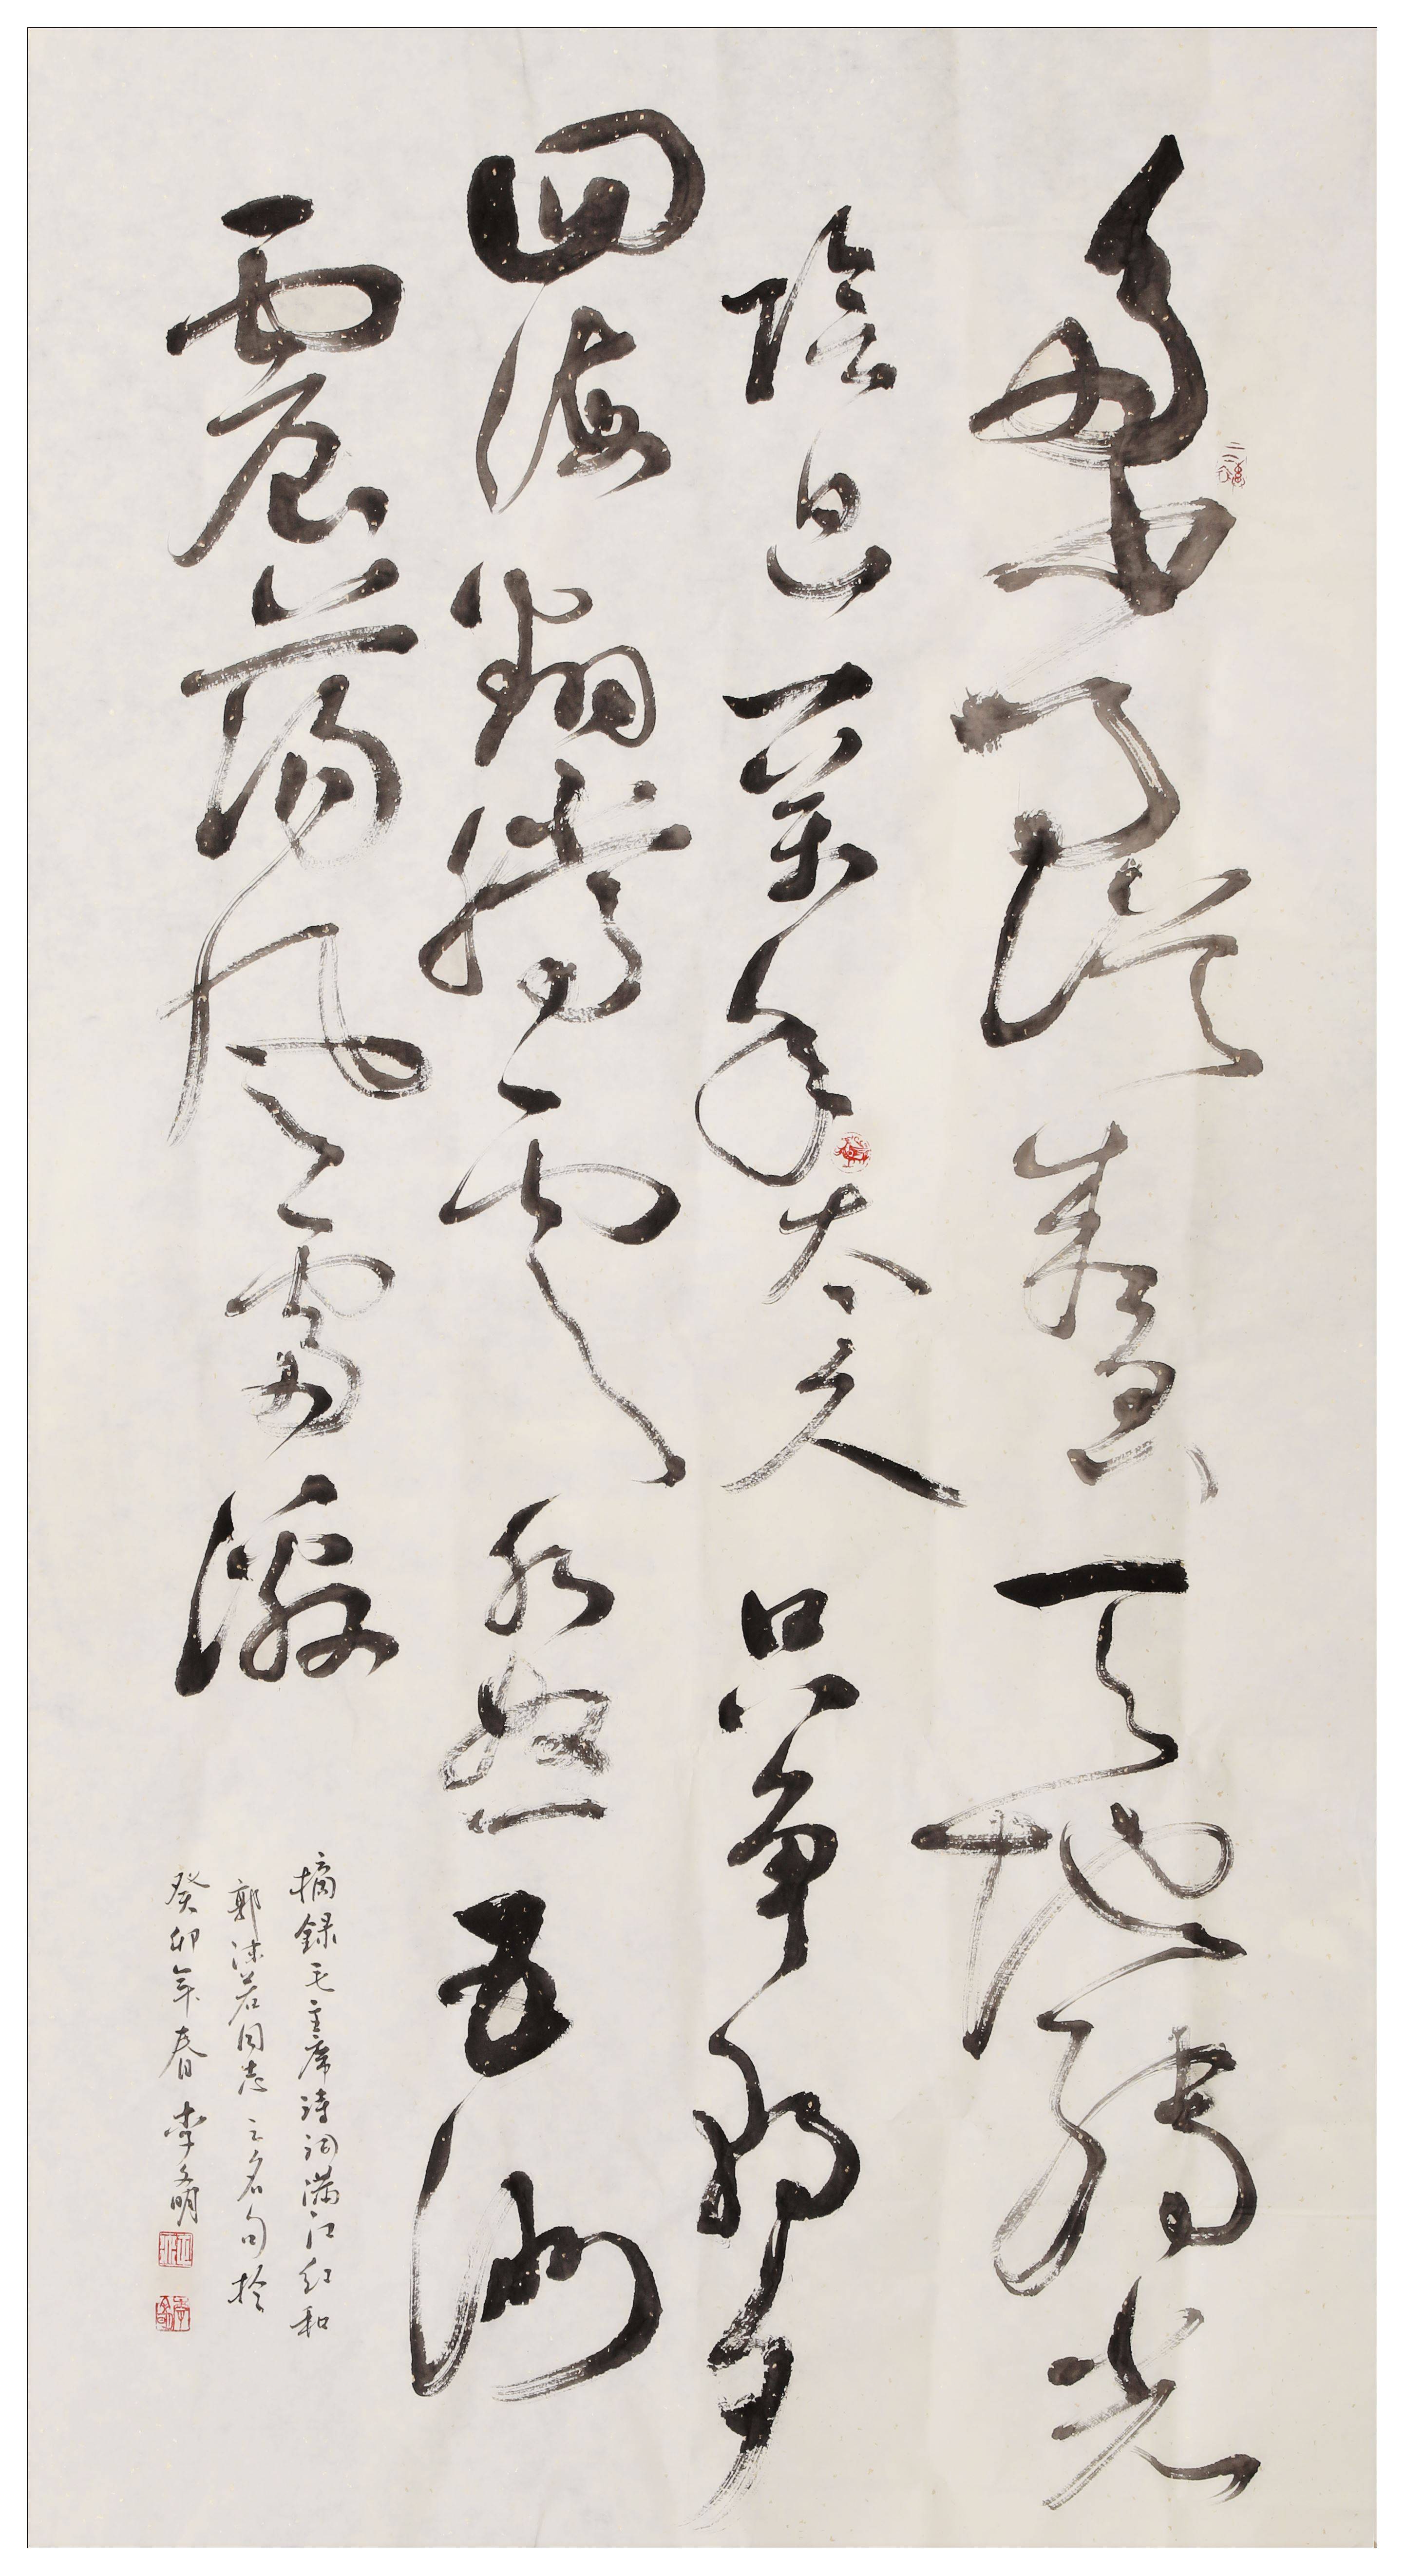 多少事從来急天地轉光
陰迫一萬年太久只争朝夕
四海翻騰雲水怒五洲
震蕩風雷激
摘録毛主席詩詞滿江红和
郭沫若同志之名句於
癸卯年春李